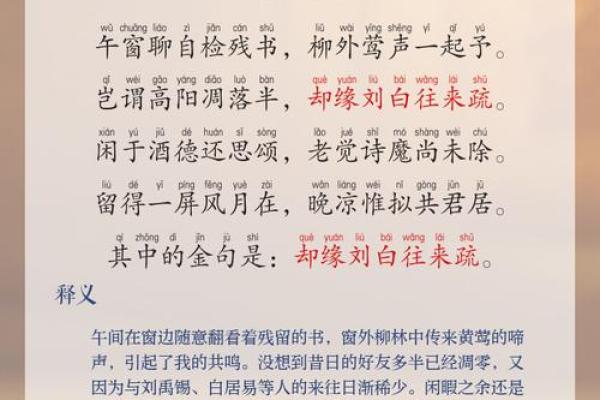 wǔ chuāng liáo zì jiǎn cán shū liǔ wài yīng shēng yī qǐ yú
午窗聊自检残书，柳外莺声一起予。
qǐ wèi gāo yáng diāo luò bàn què yuán liú bái wǎng lái shū
岂谓高阳凋落半，却缘刘白往来疏。
xián yú jiǔ dé huán sī sòng lǎo jué shī mó shàng wèi chú
闲于酒德还思颂，老觉诗魔尚未除。
liú dé yī píng fēng yuè zài wǎn liáng wéi nǐ gòng jūn jū
留得一屏风月在，晚凉惟拟共君居。
qí zhōng dì jīn jù shì què yuán liú bái wǎng lái shū
其中的金句是：却缘刘白往来疏。
释义
午间在窗边随意翻看着残留的书，窗外柳林中传来黄莺的啼
声，引起了我的共鸣。没想到昔日的好友多半已经凋零，又
因为与刘禹锡、白居易等人的来往日渐稀少。闲暇之余还是